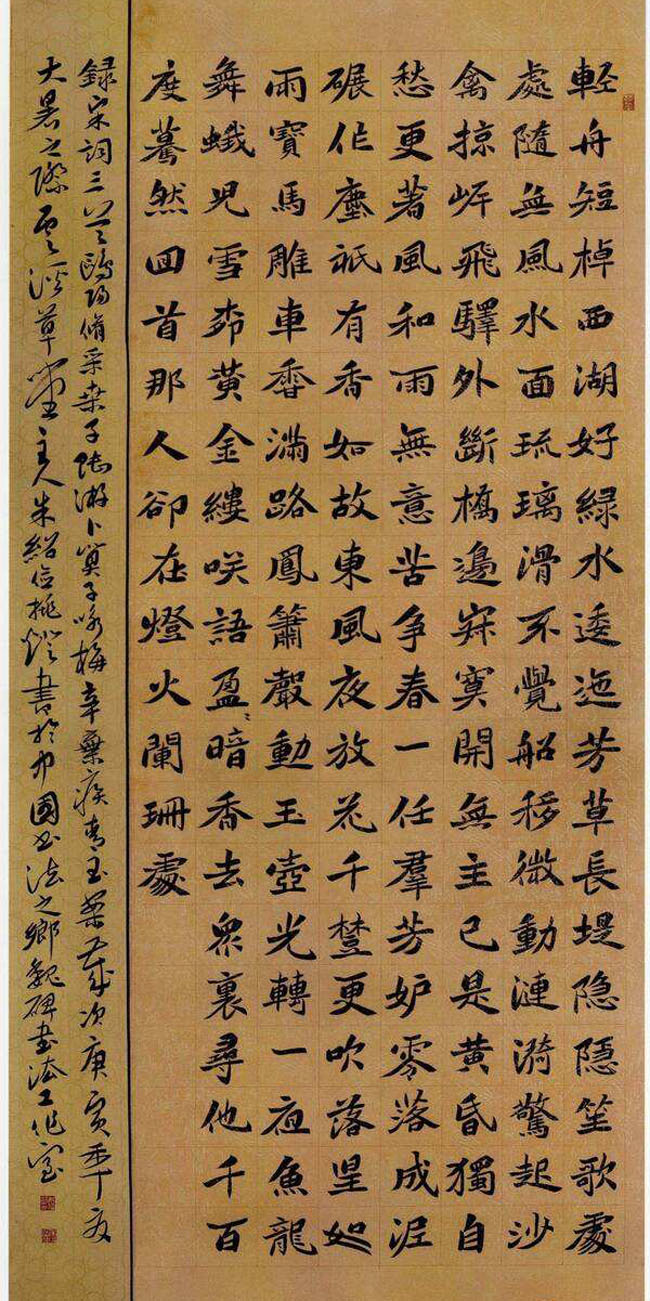 輕舟短棹西湖好綠水逶迤芳草長堤隐隱笙歌處
處隨無風水面琉璃滑不覺船移微動漣漪驚起沙
禽掠岍飛驛外斷橋邊寂寞開無主已是黃昏獨自
愁更著風和雨無意苦爭春一任羣芳妒零落成泥
碾作塵祇有香如故東風夜放花千樹更吹落星如
雨寶馬雕車香滿路鳳簫聲動玉壺光轉一夜魚龍
舞蛾兒雪柳黃金縷咲語盈〻暗香去眾裏尋他千百
度驀然回首那人卻在燈火闌珊處
録宋詞三首歐陽脩采桑子陸游卜算子咏梅辛棄疾青玉案歲次庚寅年夏
大暑之際雲溪草堂主人朱紹挑燈書於中國書法之鄉魏碑書法工作室